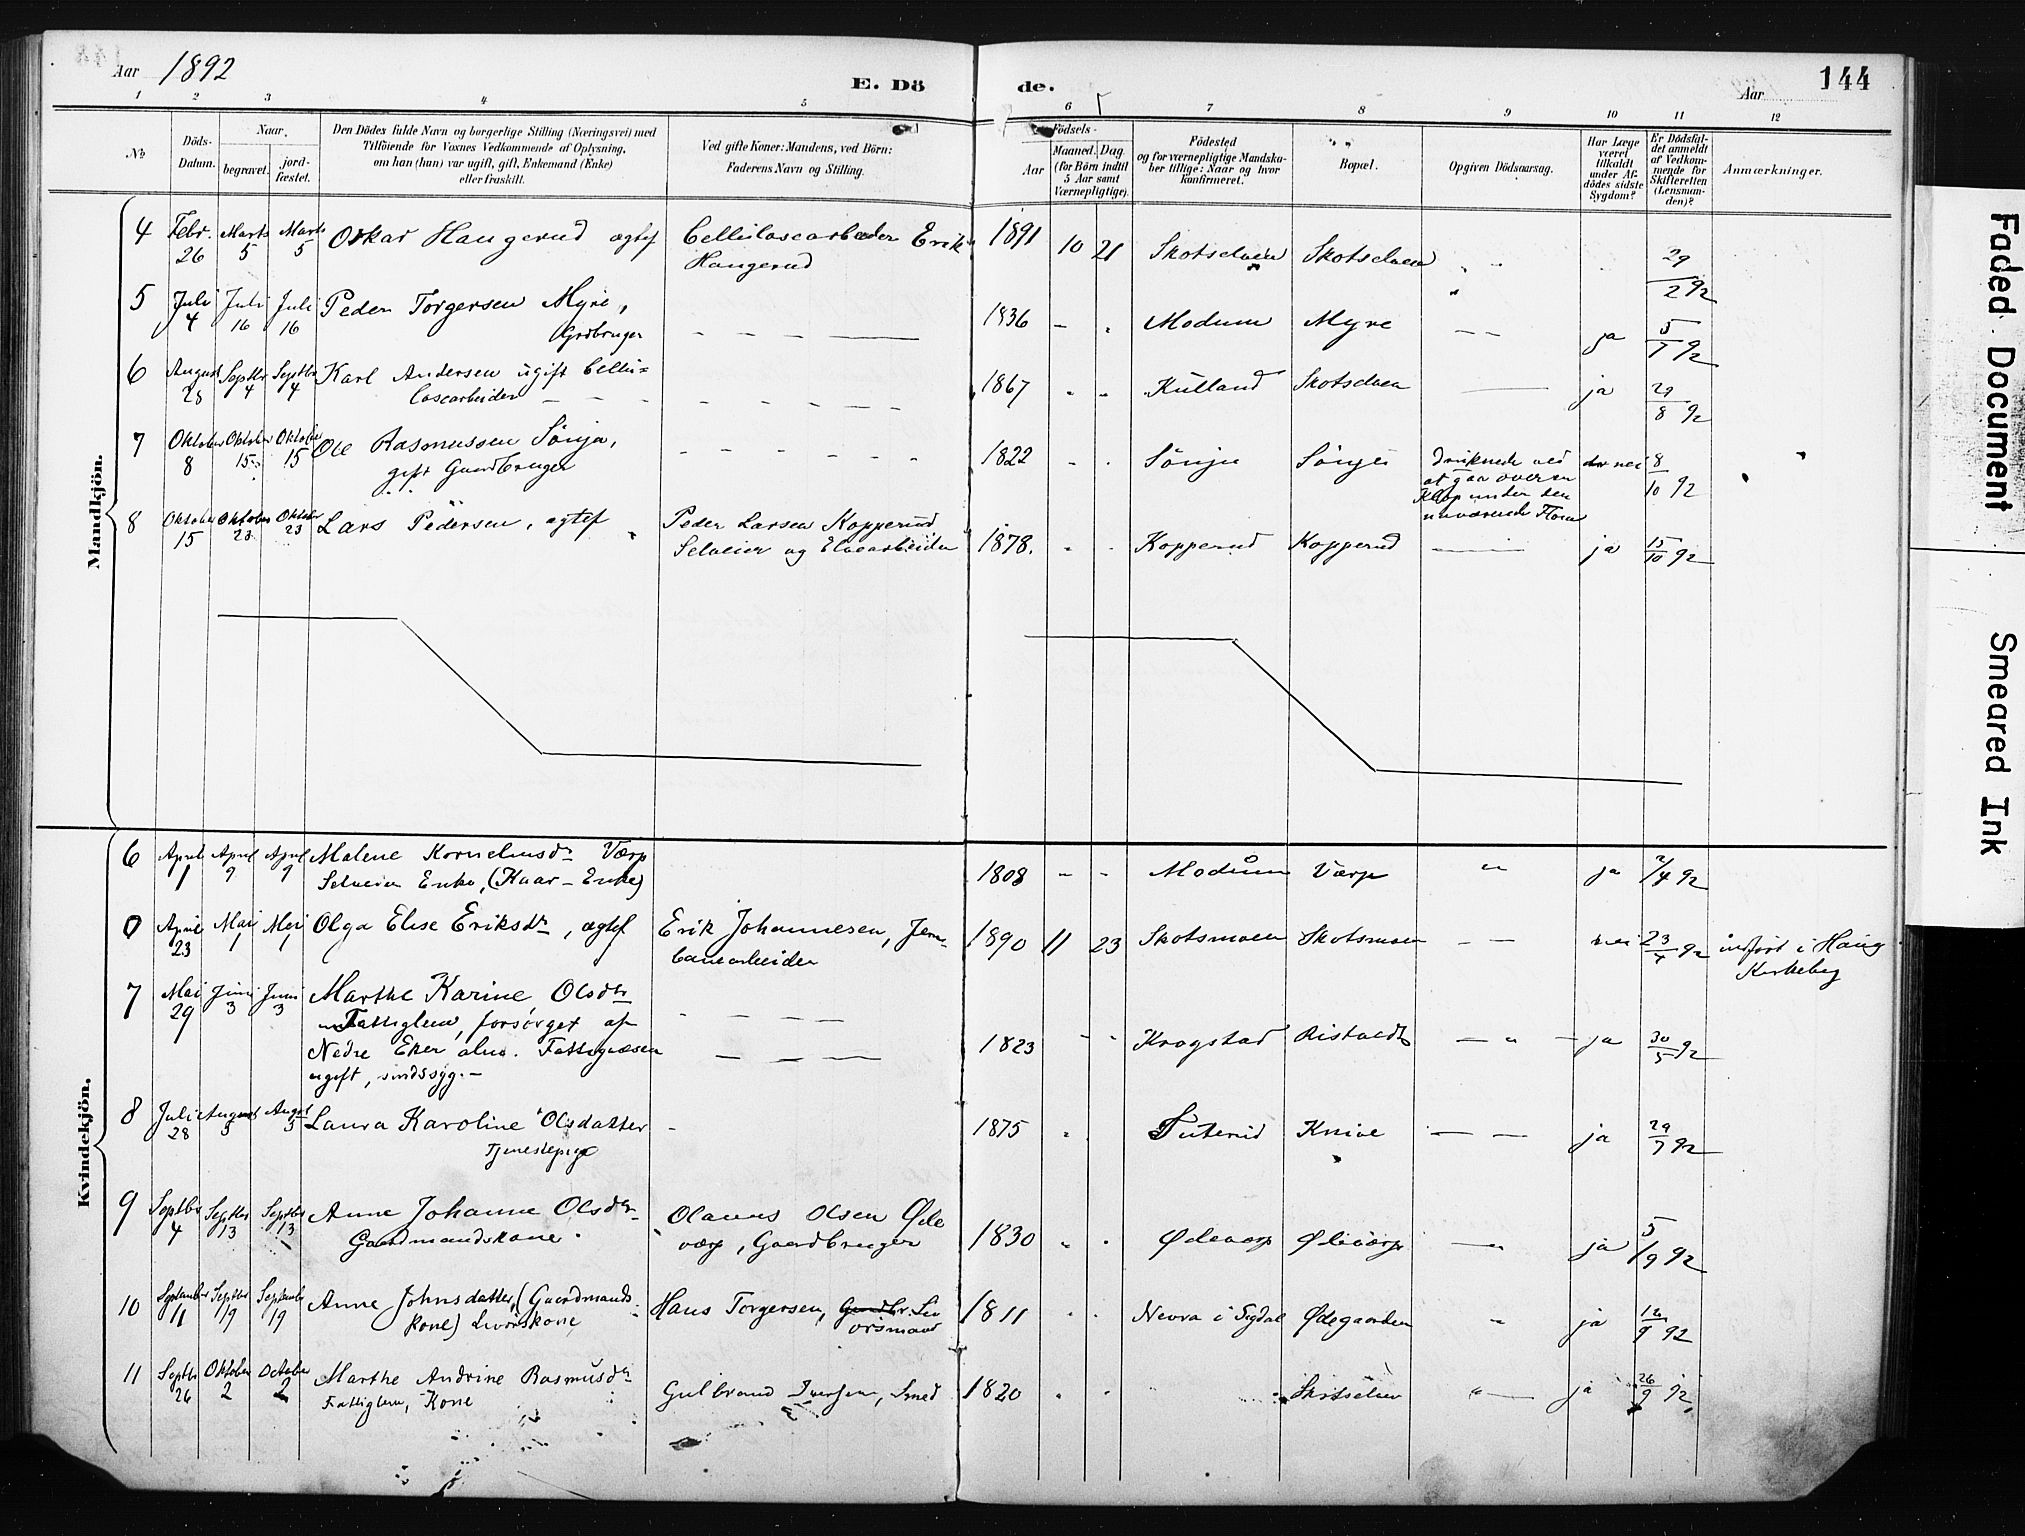 Aar 1892
E. Dö
de.
Aar
144
1 2 3 4 5 6 7 8 9 10 11 12
№
Döds-
Datum.
Naar
begravet.
jord-
fæstet.
Den Dödes fulde Navn og borgerlige Stilling (Næringsvei) med
Tilföiende for Voxnes Vedkommende af Oplysning,
om han (hun) var ugift, gift, Enkemand (Enke)
eller fraskilt.
Ved gifte Koner: Mandens, ved Börn:
Faderens Navn og Stilling.
Födsels-
Aar
Maaned. Dag.
(for Börn indtil
5 Aar samt
Værnepligtige).
Födested
og for værnepligtige Mandska-
ber tillige: Naar og hvor
konfirmeret.
Bopæl.
Opgiven Dödsaarsag.
Har Læge
været
tilkaldt
under Af-
dödes sidste
Sygdom?
Er Dödsfal-
det anmeldt
af Vedkom-
mende for
Skifteretten
(Lensman-
den)?
Anmærkninger.
Mandkjön.
4 Febr. 26 Marts 5 Marts 5 Oskar Haugerud ægtef Cellulosearbeider Erik 1891 10 21 Skotselven Skotselven 29/2 92
Haugerud
5 Juli 4 Juli 16 Juli 16 Peder Torgersen Myre, 1836 Modum Myre ja 5/7 92
Grdbruger
6 August 28 Septbr 4 Septbr 4 Karl Andersen ugift Cellu= 1867 Kulland Skotselven ja 29/8 92
losearbeider
7 Oktober 8 Oktober 15 Oktober 15 Ole Rasmussen Sönju, 1822 Sönju Sönju druknede ved nei 8/10 92
gift Gaardbruger at gaa over en
Klop under den
nuværende Flom
8 Oktober 15 Oktober 23 Oktober 23 Lars Pedersen, ægtef Peder Larsen Kopperud 1878. Kopperud Kopperud ja 15/10 92
Selveier og Elvearbeider
Kvindekjön.
6 April 1 April 9 April 9 Malene Kornelius dr Værp 1808 Modum Værp ja 2/4 92
Selveier Enke, (Kaar-Enke)
0 April 23 Mai 1 Mai 1 Olga Elise Eriksdtr, ægtef Erik Johannesen, Jern- 1890 11 23 Skotsmoen Skotsmoen nei 23/4 92 indfört i Haug
banearbeider Kirkebog
7 Mai 29 Juni 3 Juni 3 Marthe Karine Olsdtr
Fattiglem, forsörget af
Nedre Eker alm. Fattigvæsen 1823 Krogstad ja 30/5 92
ugift, sindssyg.-
8 Juli 28 August 5 August 5 Laura Karoline Olsdatter 1875 Knive ja 29/7 92
Tjenestepige
9 Septbr 4 Septbr 13 Septbr 13 Anne Johanne Olsdtr Olaves Olsen Øde 1830 Ødeværp Ødeværp ja 5/9 92
Gaardmandskone. værp, Gaardbruger
10 September 11 Septbr 19 September 19 Anne Johnsdatter, (Gaardmands Hans Torgersen, Gaardbr. Liv 1811 Nevra i Sigdal Ødegaarden ja 12/9 92
kone) Livörskone örsmand
11 Septbr 26 Oktober 2 October 2 Marthe Andrine Rasmusdtr Gulbrand Iversen, Smed 1820 Skotselven ja 26/9 92
Fattiglem, Kone
Faded Document
Smeared Ink